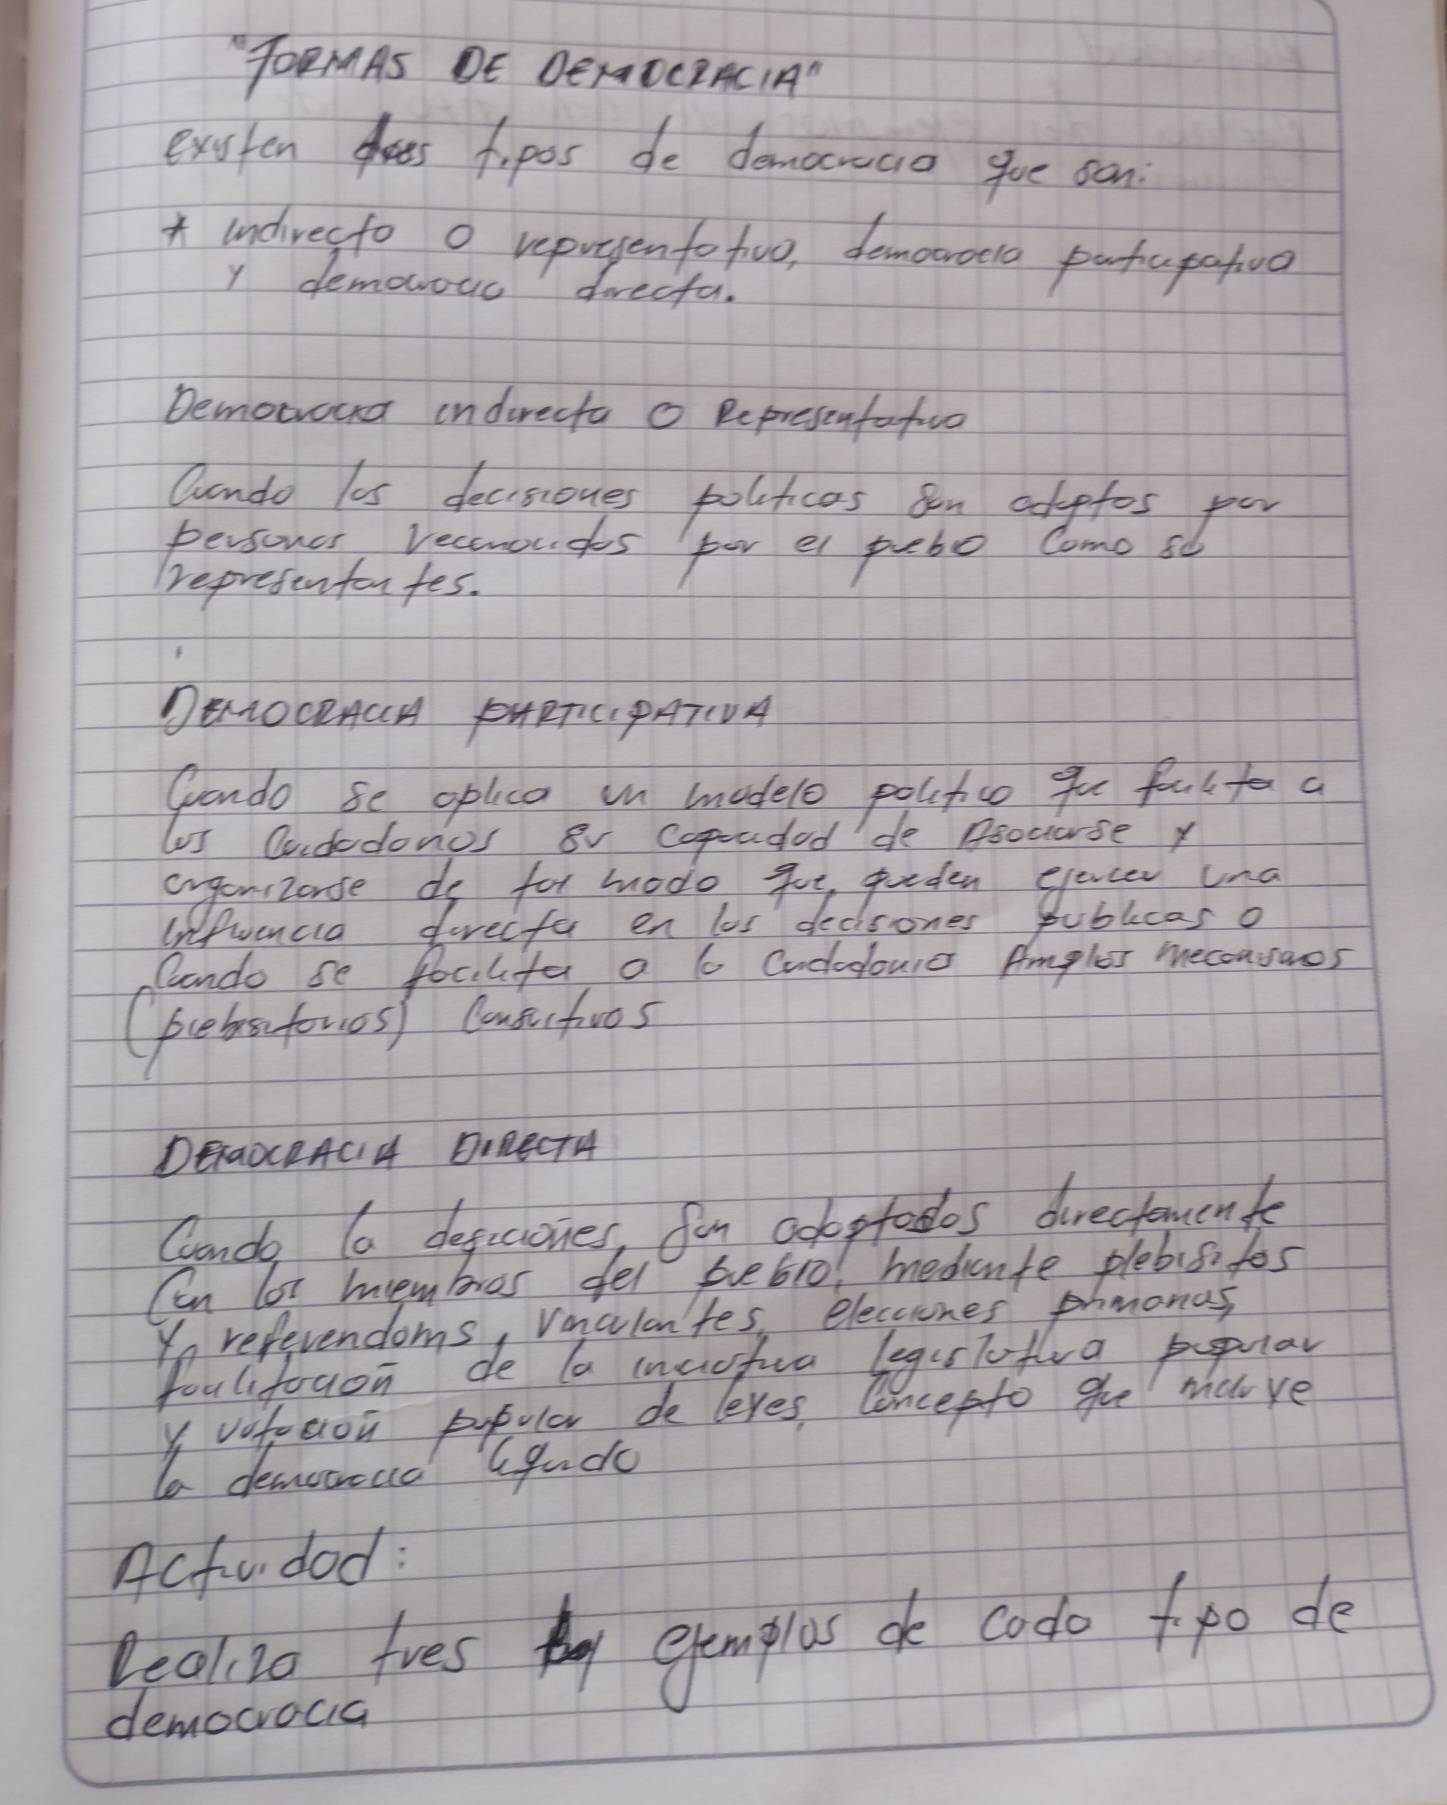 "FORMAS DE DEMOCRACIA"
existen tres tipos de democracia que son:
* indirecta o representativa, democracia participativa
y democracia directa.
Democracia indirecta o Representativa
Cuando las decisiones politicas son adoptos por
personas reconocidos por el pueblo como su
representantes.
DEMOCRACIA PARTICIPATIVA
Cuando se aplica un modelo politico que facilita a
los Ciudadanos su capacidad de Asociarse y
organizarse de tal modo que, pueden ejercer una
influencia directa en las decisiones publicas o
Cuando se facilita a la Ciudadania Amplios mecanismos
(plebisitorios) Consultivos
DEMOCRACIA DIRECTA
Cuando la desiciones, son adoptados directamente
Con los miembros del pueblo, mediante plebisitos
y referendoms, vinculantes, elecciones primarias,
facilitación de la iniciativa legislativa popular
y votación popular de leyes, Concepto que incluye
la democracia liquida
Actividad:
Realiza tres ejemplos de cada tipo de
democracia